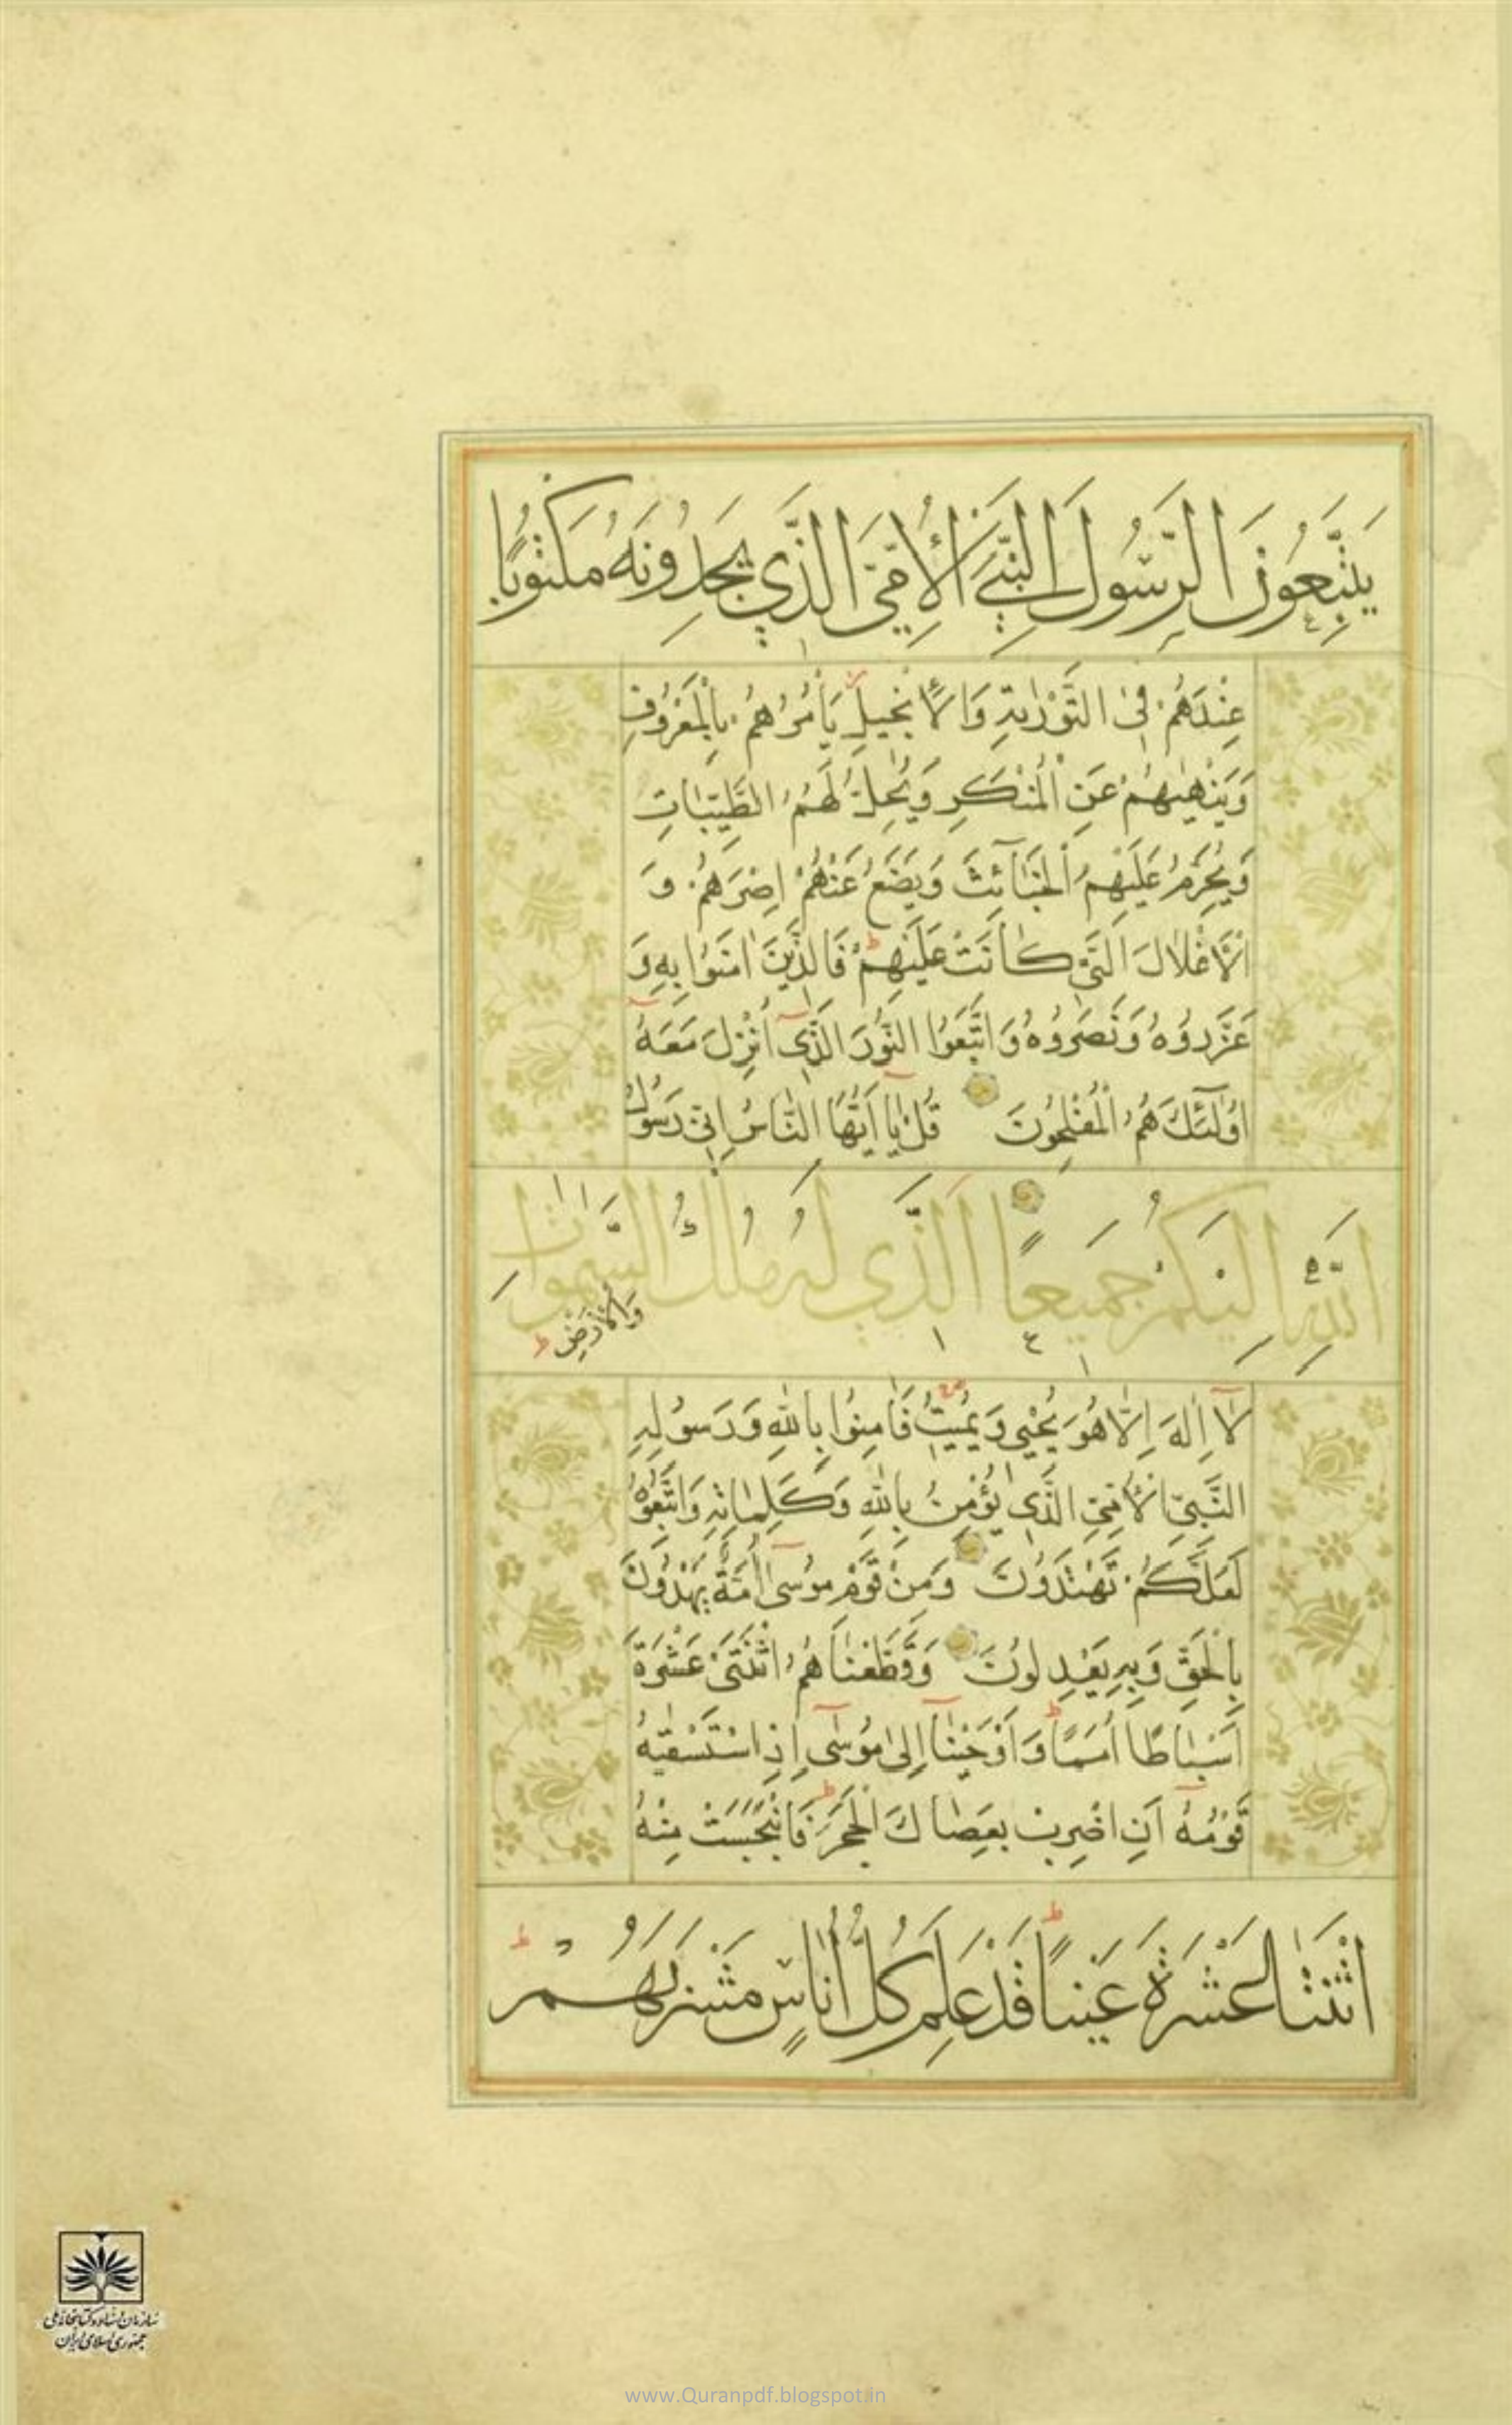 يَتَّبِعُونَ الرَّسُولَ النَّبِيَّ الْأُمِّيَّ الَّذِي يَجِدُونَهُ مَكْتُوبًا
عِنْدَهُمْ فِى التَّوْرٰيةِ وَالْاِنْجِيلِ يَأْمُرُهُمْ بِالْمَعْرُوفِ
وَيَنْهٰيهُمْ عَنِ الْمُنْكَرِ وَيُحِلُّ لَهُمُ الطَّيِّبَاتِ
وَيُحَرِّمُ عَلَيْهِمُ الْخَبَآئِثَ وَيَضَعُ عَنْهُمْ اِصْرَهُمْ وَ
الْاَغْلَالَ الَّتِى كَانَتْ عَلَيْهِمْ فَالَّذِينَ اٰمَنُوا بِهِ وَ
عَزَّرُوهُ وَنَصَرُوهُ وَاتَّبَعُوا النُّورَ الَّذِى اُنْزِلَ مَعَهُ
اُولٰٓئِكَ هُمُ الْمُفْلِحُونَ قُلْ يَا اَيُّهَا النَّاسُ اِنِّى رَسُولُ
اللّٰهِ اِلَيْكُمْ جَمِيعًا الَّذِي لَهُ مُلْكُ السَّمٰوَاتِ
وَالْاَرْضِ
لَآ اِلٰهَ اِلَّا هُوَ يُحْيِى وَيُمِيتُ فَاٰمِنُوا بِاللّٰهِ وَرَسُولِهِ
النَّبِىِّ الْاُمِّىِّ الَّذِى يُؤْمِنُ بِاللّٰهِ وَكَلِمَاتِهِ وَاتَّبِعُوهُ
لَعَلَّكُمْ تَهْتَدُونَ وَمِنْ قَوْمِ مُوسٰى اُمَّةٌ يَهْدُونَ
بِالْحَقِّ وَبِهِ يَعْدِلُونَ وَقَطَّعْنَاهُمُ اثْنَتَىْ عَشْرَةَ
اَسْبَاطًا اُمَمًا وَاَوْحَيْنَآ اِلٰى مُوسٰٓى اِذِ اسْتَسْقٰيهُ
قَوْمُهُ اَنِ اضْرِبْ بِعَصَاكَ الْحَجَرَ فَانْبَجَسَتْ مِنْهُ
اثْنَتَا عَشْرَةَ عَيْنًا قَدْ عَلِمَ كُلُّ اُنَاسٍ مَشْرَبَهُمْ
سازمان اسناد و کتابخانه ملی
جمهوری اسلامی ایران
www.Quranpdf.blogspot.in